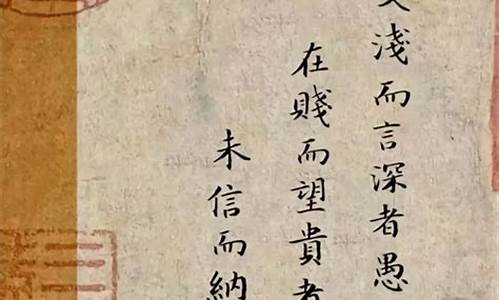 交淺而言深者愚
在賤而望貴者
未信而納